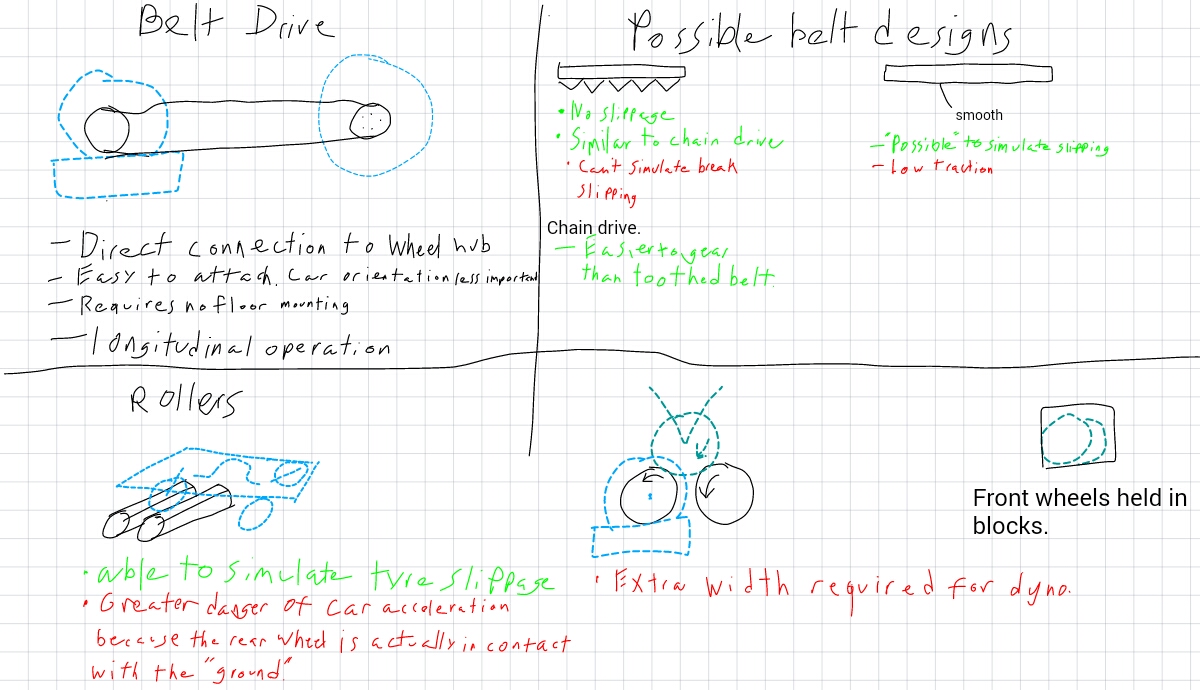 Belt Drive
- Direct connection to wheel hub
- Easy to attach. Car orientation less important
- Requires no floor mounting
- longitudinal operation
Possible belt designs
• No slippage
• Similar to chain drive
• Can't simulate break
slipping
smooth
- "Possible" to simulate slipping
- Low traction
Chain drive.
- Easier to gear
than toothed belt.
Rollers
• able to simulate tyre slippage
• Greater danger of car acceleration
because the rear wheel is actually in contact
with the "ground"
• Extra width required for dyno.
Front wheels held in
blocks.